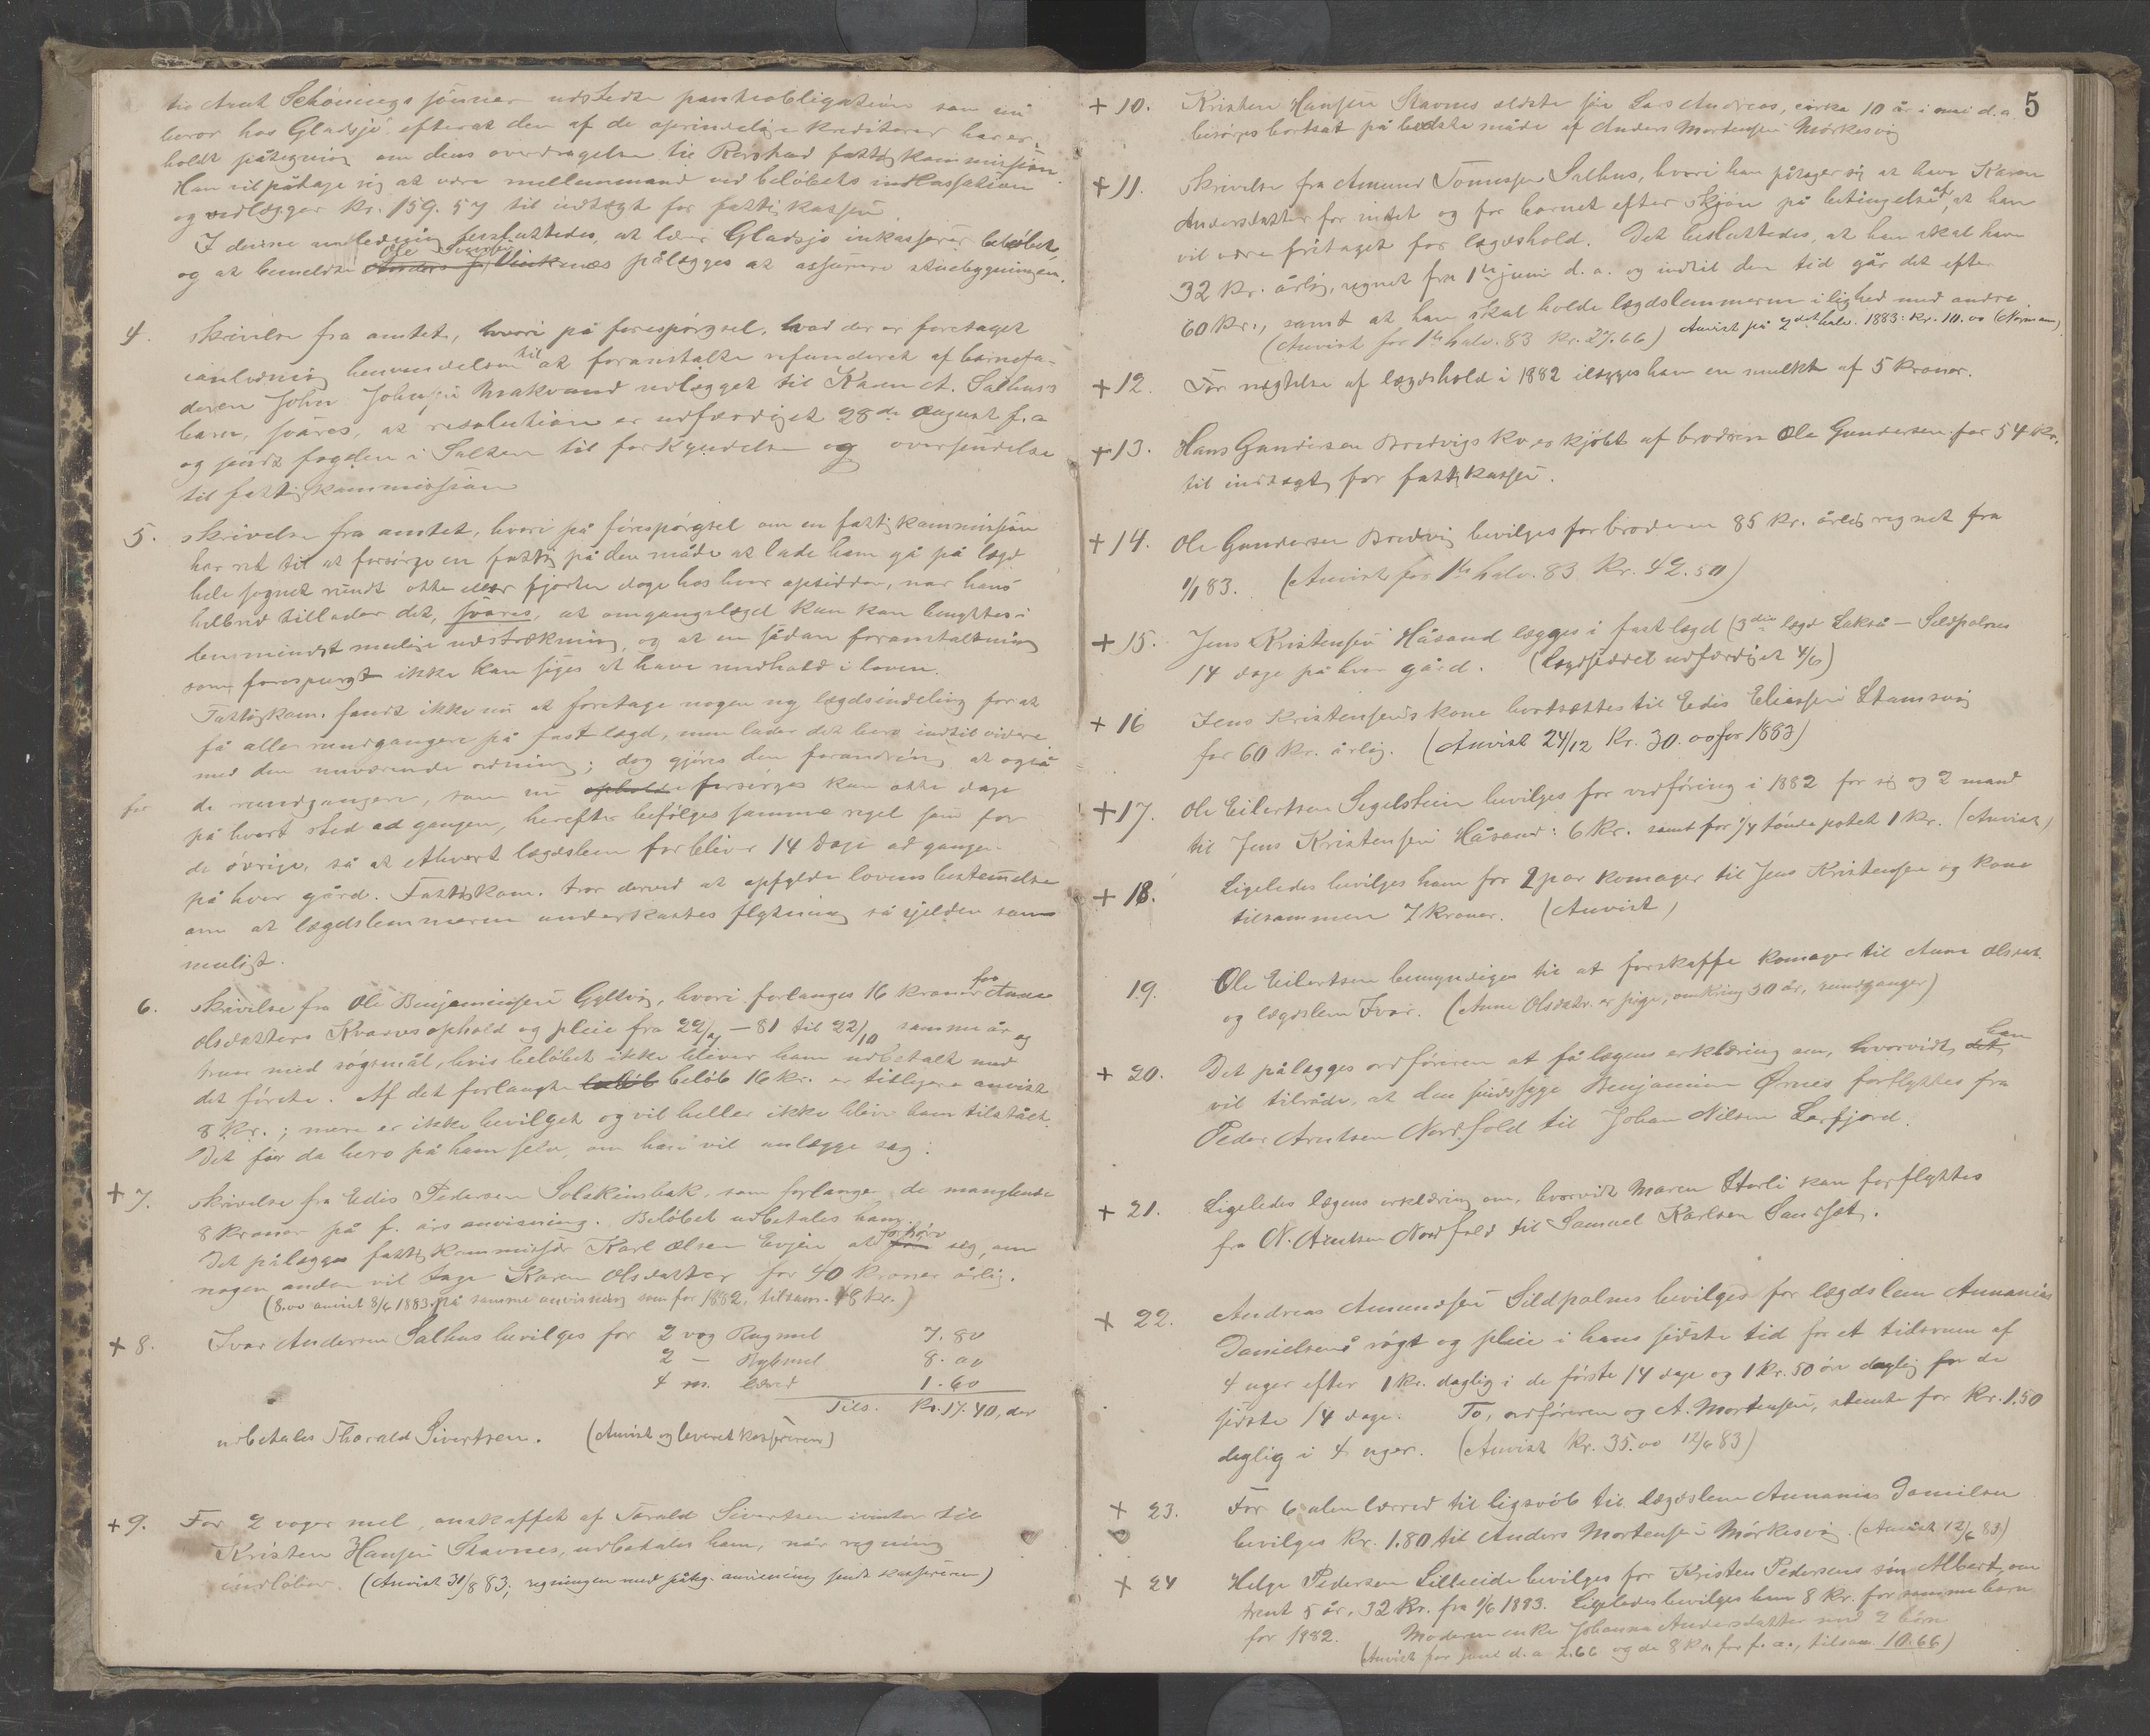 til Arnt Schönings sønner udstedte pantobligation som nu
beror hos Gladsjø efterat den af de oprindelige kreditorer har er-
holdt påtegning om dens overdragelse til Rørstad fattigkommission.
Han vil påtage sig at være mellemmand ved beløbets indkassation
og vedlægger kr. 159.57 til indtægt for fattigkassen.
I denne anledning besluttedes, at lærer Gladsjø inkasserer beløbet,
og at bemeldte Ole pålægges at assurere stuebygningen.
4. Skrivelse fra amtet, hvori på forespørgsel, hvad der er foretaget
i anledning henvendelsen til at foranstalte refunderet af barnefa-
deren John Johnsen Makvand udlægget til Karen A. Salhus's
barn, svares, at resolution er udfærdiget 28de august f. a
og sendt fogden i Salten til forkyndelse og oversendelse
til fattigkommissionen
5. Skrivelse fra amtet, hvori på forespørgsel om en fattigkommission
har ret til at forsørge en fattig på den måde at lade ham gå på lægd
hele sognet rundt otte eller fjorten dage hos hver opsidder, når hans
helbred tillader det, svares, at omgangslægd kun kan benyttes i
den mindst mulige udstrækning, og at en sådan foranstaltning
som forespurgt ikke kan siges at have medhold i loven.
Fattigkom. fandt ikke nu at foretage nogen ny lægdsinddeling for at
få alle rundgangere på fast lægd, men lader det bero indtil videre
med den nuværende ordning; dog gjøres den forandring, at også
for de rundgangere, som nu ophold forsørges kun otte dage
på hvert sted ad gangen, herefter befølges samme regel som for
de øvrige, så at ethvert lægdslem forbliver 14 dage ad gangen
på hver gård. Fattigkom. tror derved at opfylde lovens bestemmelse
om at lægdslemmerne underkastes flytning så sjelden som
muligt.
6. Skrivelse fra Ole Benjaminsen Gyltvig, hvori forlanges 16 kroner for Anne
Olsdatters Kvarvs ophold og pleie fra 22/4 – 81 til 22/10 samme år og
truer med søgsmål, hvis beløbet ikke bliver ham udbetalt med
det første. Af det forlangte beløb 16 kr. er tidligere anvist
8 kr.; mere er ikke bevilget og vil heller ikke blive ham tilstået.
Det får da bero på ham selv, om han vil anlægge sag.
+ 7. Skrivelse fra Edis Pedersen Solskinsbak, som forlanger de manglende
8 kroner på f. års anvisning. Beløbet udbetales ham.
Det pålægges fattigkommissær Karl Olsen Evjen at forhøre sig, om
nogen anden vil tage Karen Olsdatter for 40 kroner årlig.
(8.00 anvist 8/6 1883 på samme anvisning som for 1882, tilsam. 48 kr.)
+ 8. Ivar Andersen Salhus bevilges for 2 vog Rugmel 7.80
2 – Bygmel 8.00
4 m. lærred 1.60
Tils. Kr. 17.40, der
udbetales Thorald Sivertsen. (Anvist og leveret kassereren)
+ 9. For 2 voger mel, anskaffet af Torald Sivertsen ivinter til
Kristen Hansen Stavnes, udbetales ham, når regning
indløber. (Anvist 31/8 83; regningen med påteg. anvisning sendt kassereren)
5
+ 10. Kristen Hansen Stavnes ældste søn Lars Andreas, cirka 10 år i mai d. a
besørges bortsat på bedste måde af Anders Mortensen Mørkesvig
+ 11. Skrivelse fra Amund Tomassen Salhus, hvori han påtager sig at have Karen
Andersdatter for intet og for barnet efter skjøn på betingelse af, at han
vil være fritaget for lægdshold. Det besluttedes, at han skal have
32 kr. årlig, regnet fra 1ste juni d. a. og indtil den tid går det efter
60 kr., samt at han skal holde lægdslemmerne i lighed med andre
(Anvist for 1ste halv. 83 kr. 27.66) Anvist på 2det halv. 1883: kr. 10.00 (Normann)
+ 12. For nægtelse af lægdshold i 1882 ilægges ham en mulkt af 5 kroner.
+ 13. Hans Gundersen Bredvigs ko er kjøbt af broderen Ole Gundersen for 54 kr.
til indtægt for fattigkassen.
+ 14. Ole Gundersen Bredvig bevilges for broderen 85 kr. årlig regnet fra
1/1 83. (Anvist for 1ste halv. 83 kr. 42.50)
+ 15. Jens Kristensen Håsand lægges i fast lægd (3die lægd Lakså – Sildpolnes
14 dage på hver gård. (Lægdseddel udfærdiget 4/6)
+ 16 Jens Kristensens kone bortsættes til Edis Eliassen Stamsvig
for 60 kr. årlig. (Anvist 24/12 kr. 30.00 for 1883)
+ 17. Ole Eilertsen Segelstein bevilges for vedføring i 1882 for sig og 2 mand
til Jens Kristensen Håsand: 6 kr. samt for 1/4 tønde potet 1 kr. (Anvist)
+ 18. Ligeledes bevilges ham for 2 par komager til Jens Kristensen og kone
tilsammen 7 kroner. (Anvist)
19. Ole Eilertsen bemyndiges til at forskaffe komager til Anne Olsdat.
og lægdslem Ivar. (Anne Olsdatr. er pige, omkring 30 år, rundganger)
+ 20. Det pålægges ordføreren at få lægens erklæring om, hvorvidt det han
vil tilråde, at den sindssyge Benjamin Ørnes forflyttes fra
Peder Arntsen Nordfold til Johan Nilsen Lerfjord.
+ 21. Ligeledes lægens erklæring om, hvorvidt Maren Storli kan forflyttes
fra N. Arntsen Nordfold til Samuel Karlsen Sandsæt.
+ 22. Andreas Amundsen Sildpolnes bevilges for lægdslem Annanias
Danielsens røgt og pleie i hans sidste tid for et tidsrum af
4 uger efter 1 kr. daglig i de første 14 dage og 1 kr. 50 øre daglig for de
sidste 14 dage. To, ordføreren og A. Mortensen, stemte for kr. 1.50
daglig i 4 uger. (Anvist kr. 35.00 12/6 83)
+ 23. For 6 alen lærred til ligsvøb til lægdslem Annanias Danielsen
bevilges kr. 1.80 til Anders Mortensen Mørkesvig. (Anvist 12/6 83)
+ 24 Helge Pedersen Lilleeide bevilges for Kristen Pedersens søn Albert, om
trent 5 år, 32 kr. fra 1/6 1883. Ligeledes bevilges ham 8 kr. for samme barn
for 1882. Moderen enke Johanna Andersdatter med 2 børn
(Anvist for juni d. a 2.66 og de 8 kr. for f. a., tilsam. 10.66)